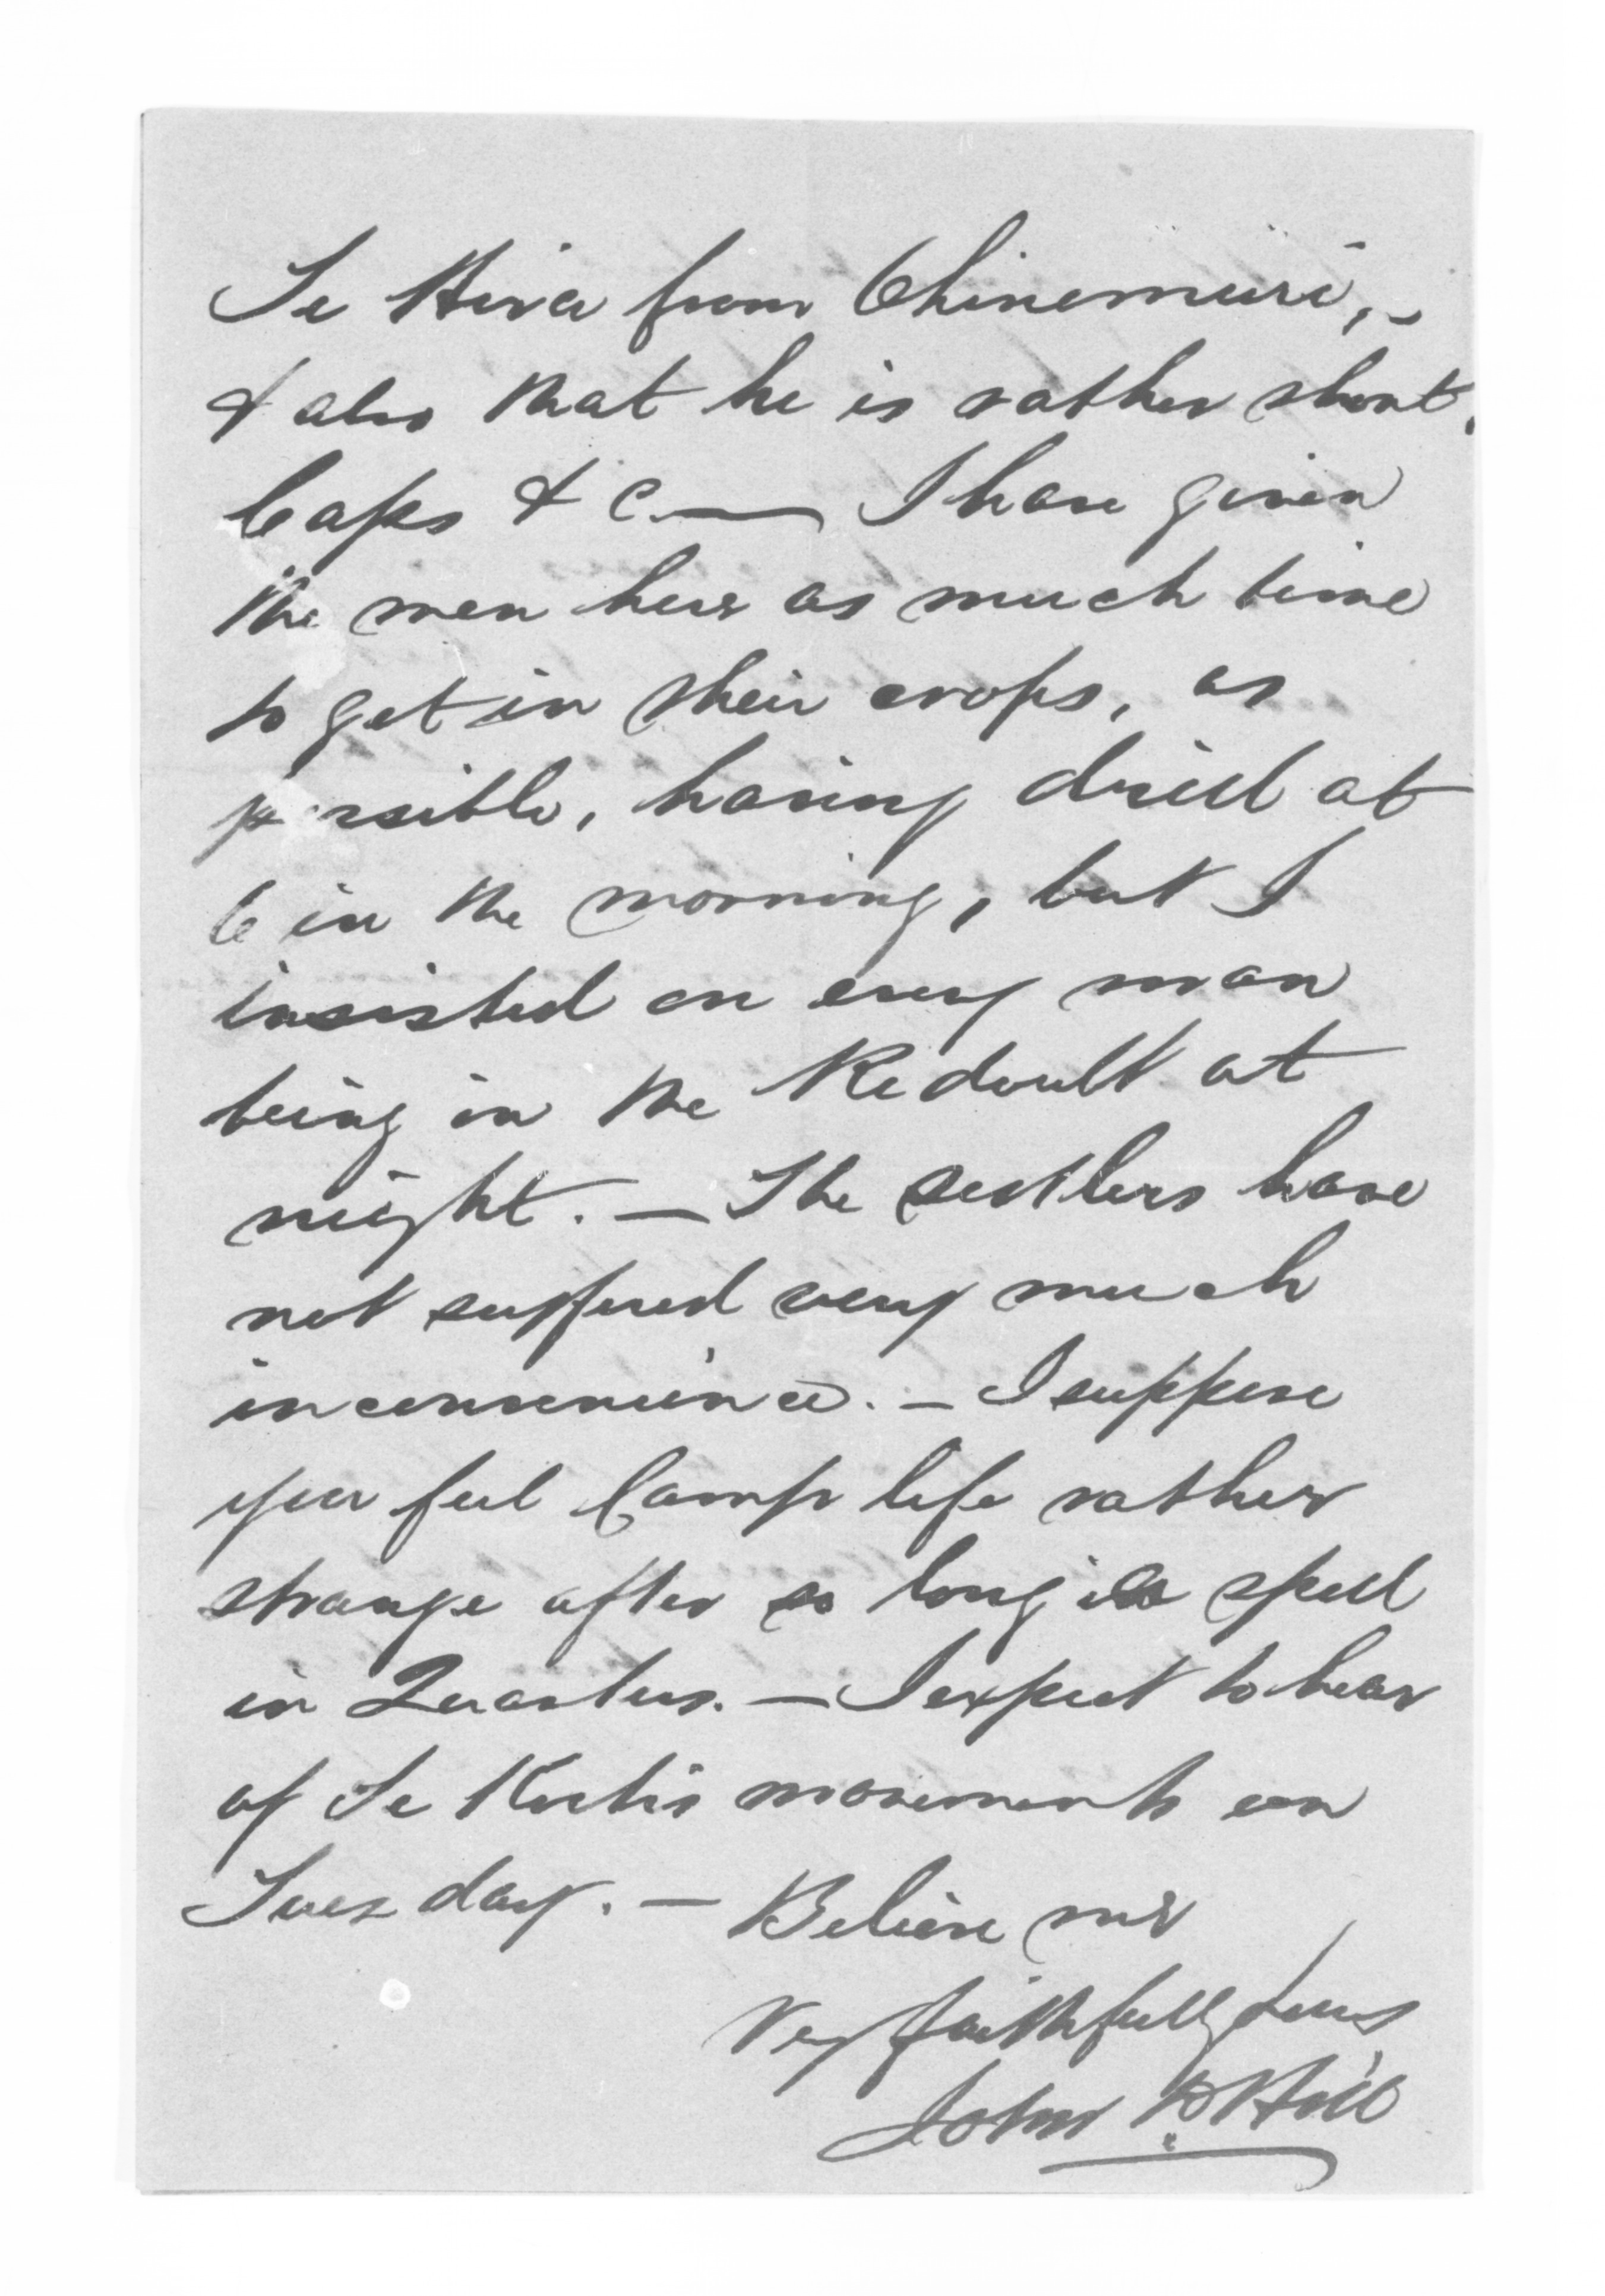 Te Hira from Ohinemuri, -
& also that he is rather short,
Caps & c. — I have given
the men here as much time
to get in their crops, as
possible, having drill at
6 in the morning, but I
insisted on every man
being in the Redoubt at
night. — The settlers have
not suffered very much
inconvenience. — I suppose
you feel Camp life rather
strange after so long a spell
in Quarters. — I expect to hear
of Te Kooti's movements on
Tuesday. — Believe me
Very faithfully yours
John Hill